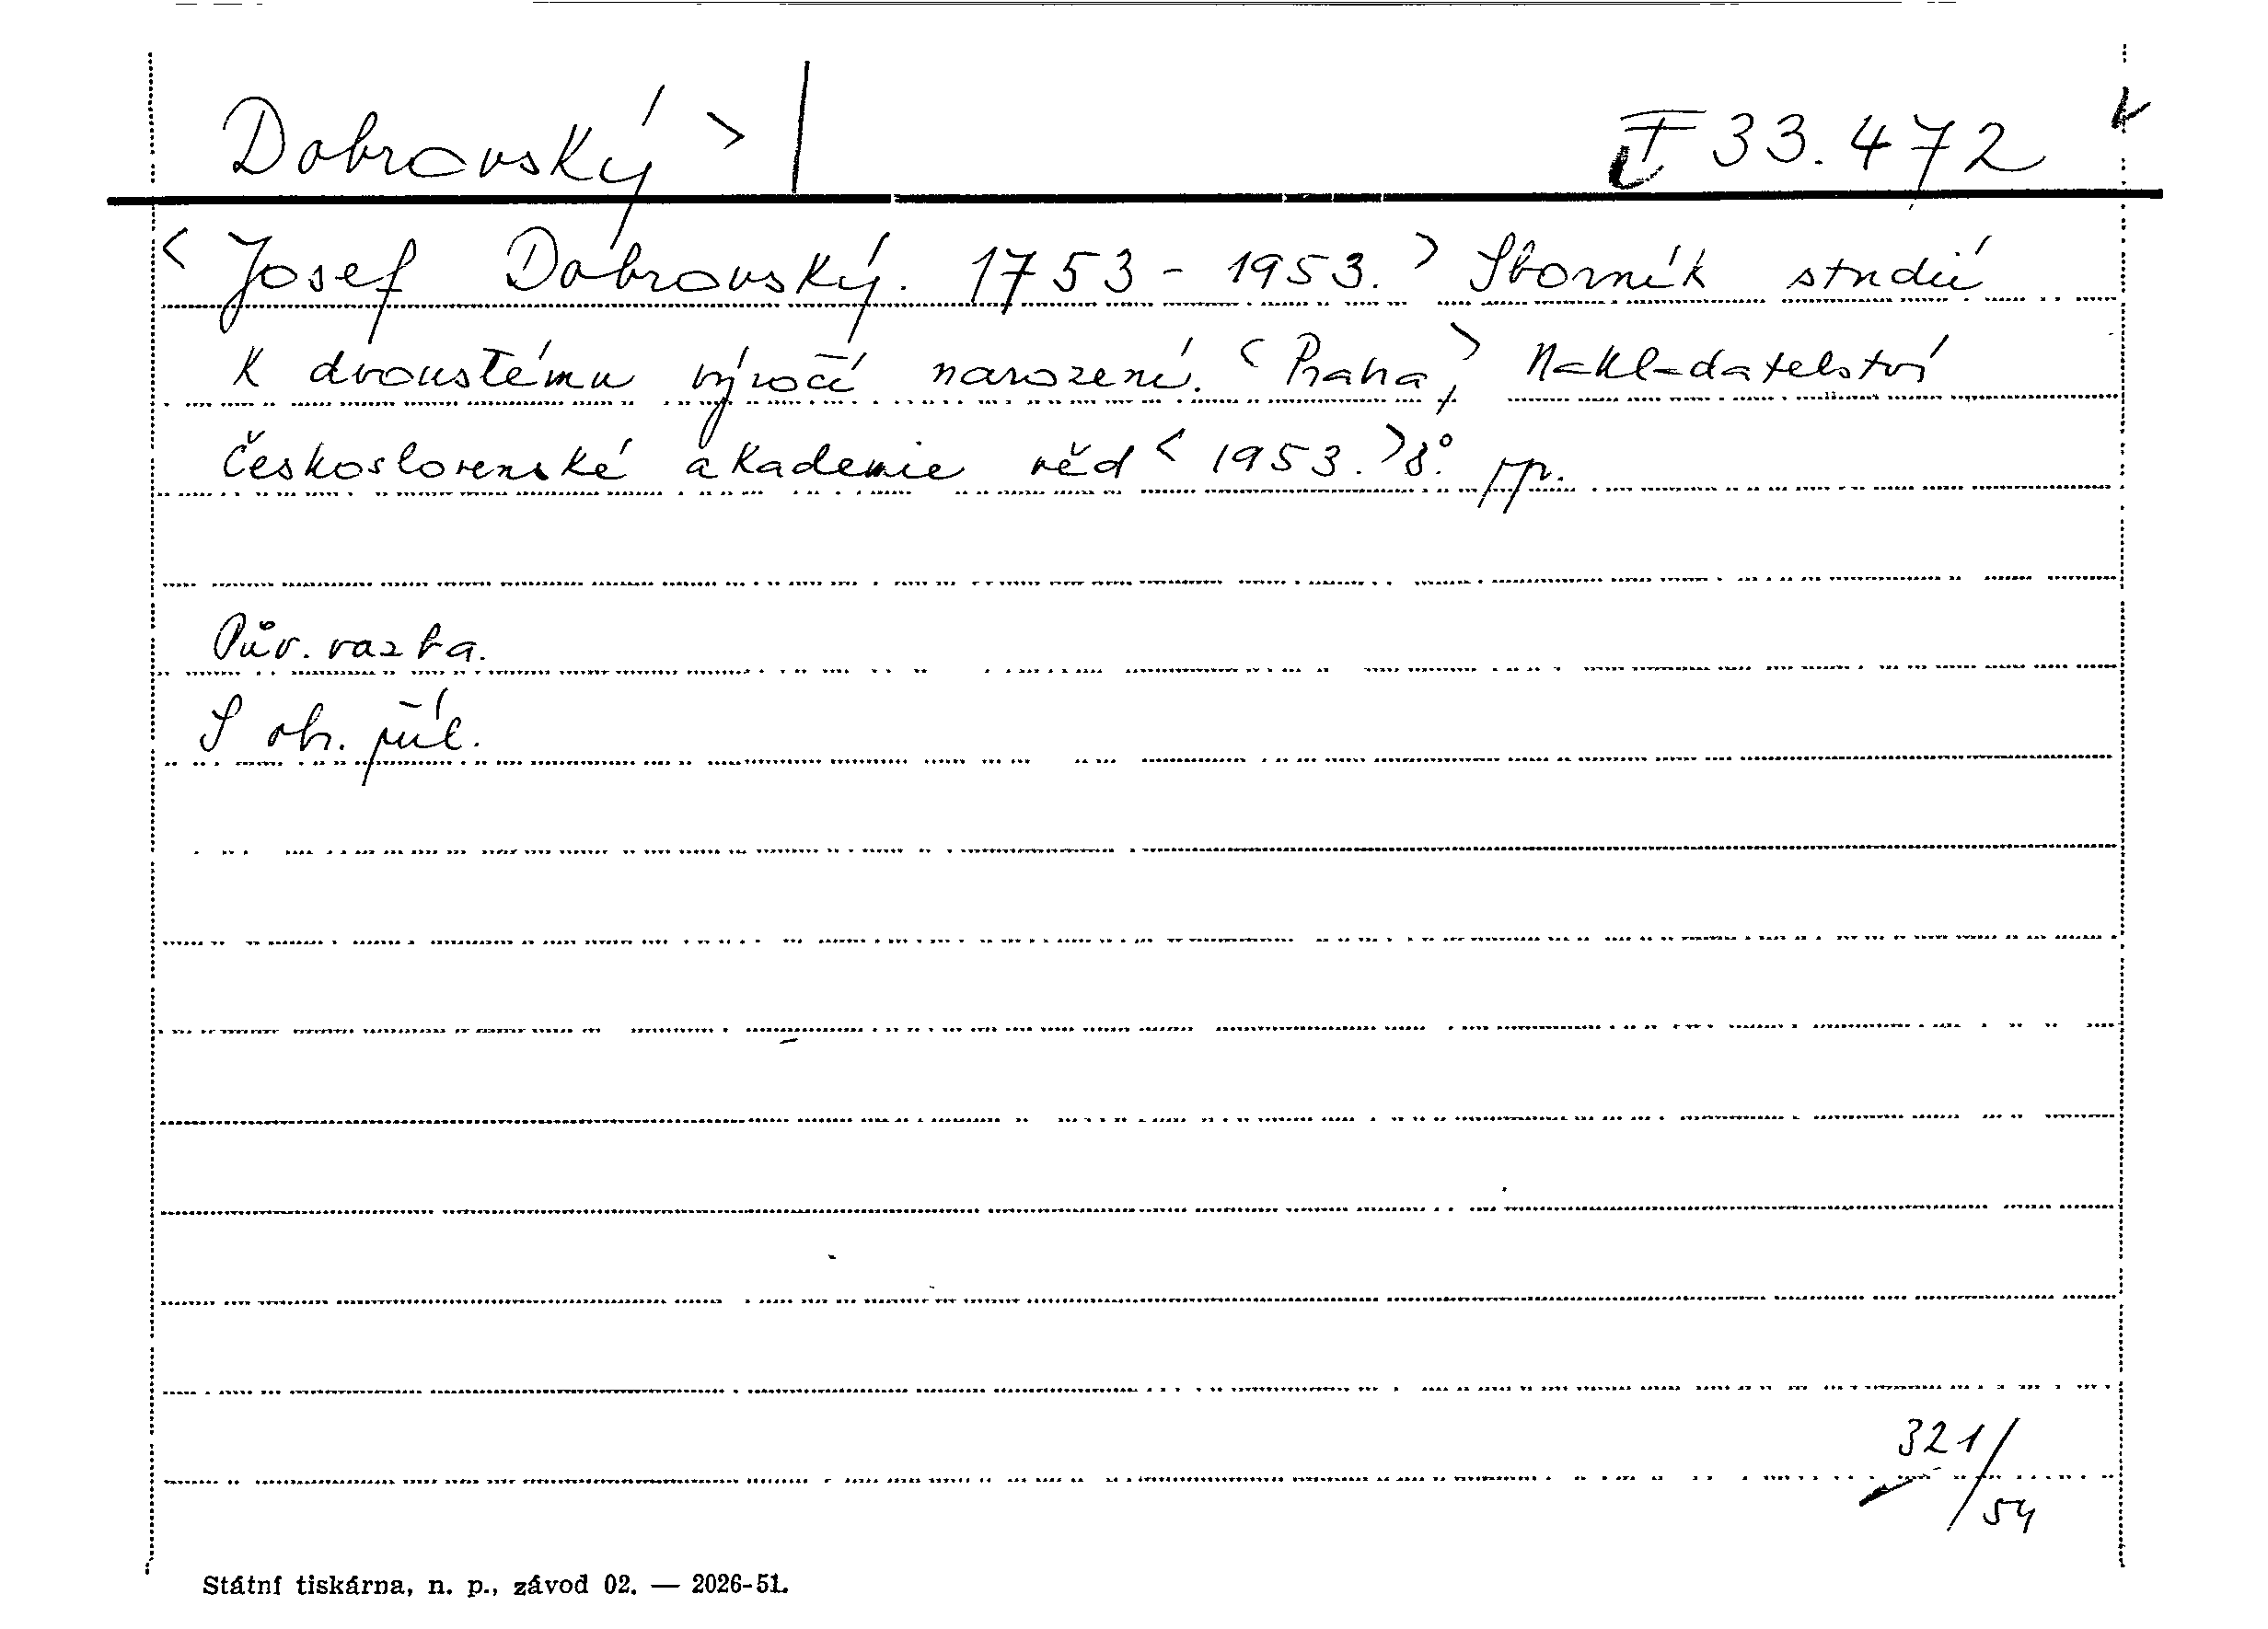 Dobrovský > F 33.472
< Josef Dobrovský. 1753 - 1953. > Sborník studií
k dvoustému výročí narození. < Praha, > Nakladatelství
Československé akademie věd < 1953. > 8°. pp.
Pův. vazba.
S obr. příl.
321/54
Státní tiskárna, n. p., závod 02. — 2026-51.